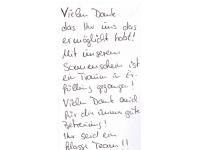 Vielen Dank
das Ihr uns das
ermöglicht habt!
Mit unserem
Sonnenschein ist
ein Traum in Er-
füllung gegangen!
Vielen Dank auch
für die immer gute
Betreuung!
Ihr seid ein
klasse Team!!